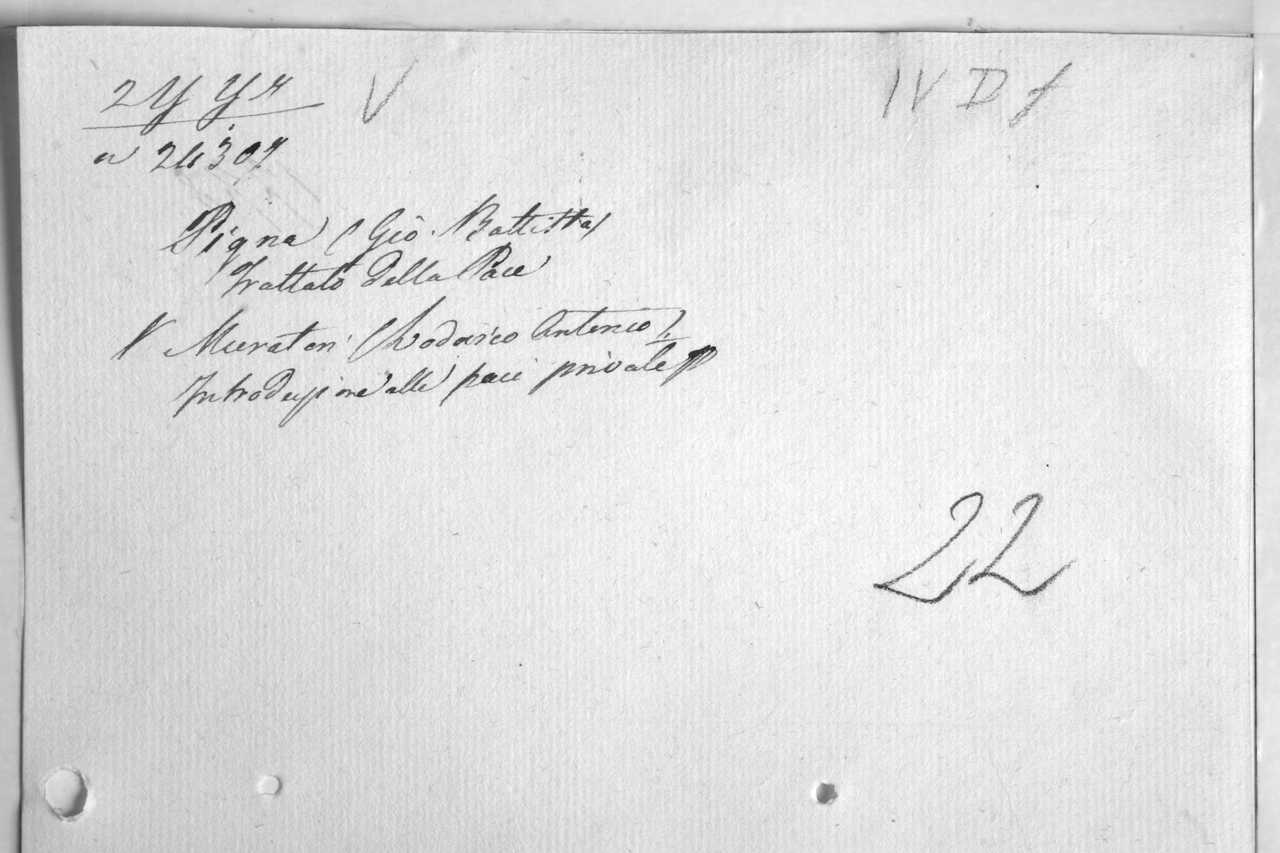 2 Y Yy V IV D f
n 24307
Pigna (Gio. Battista)
Trattato della Pace
V Muratori (Lodovico Antonio).
Introduzione alle paci private
22